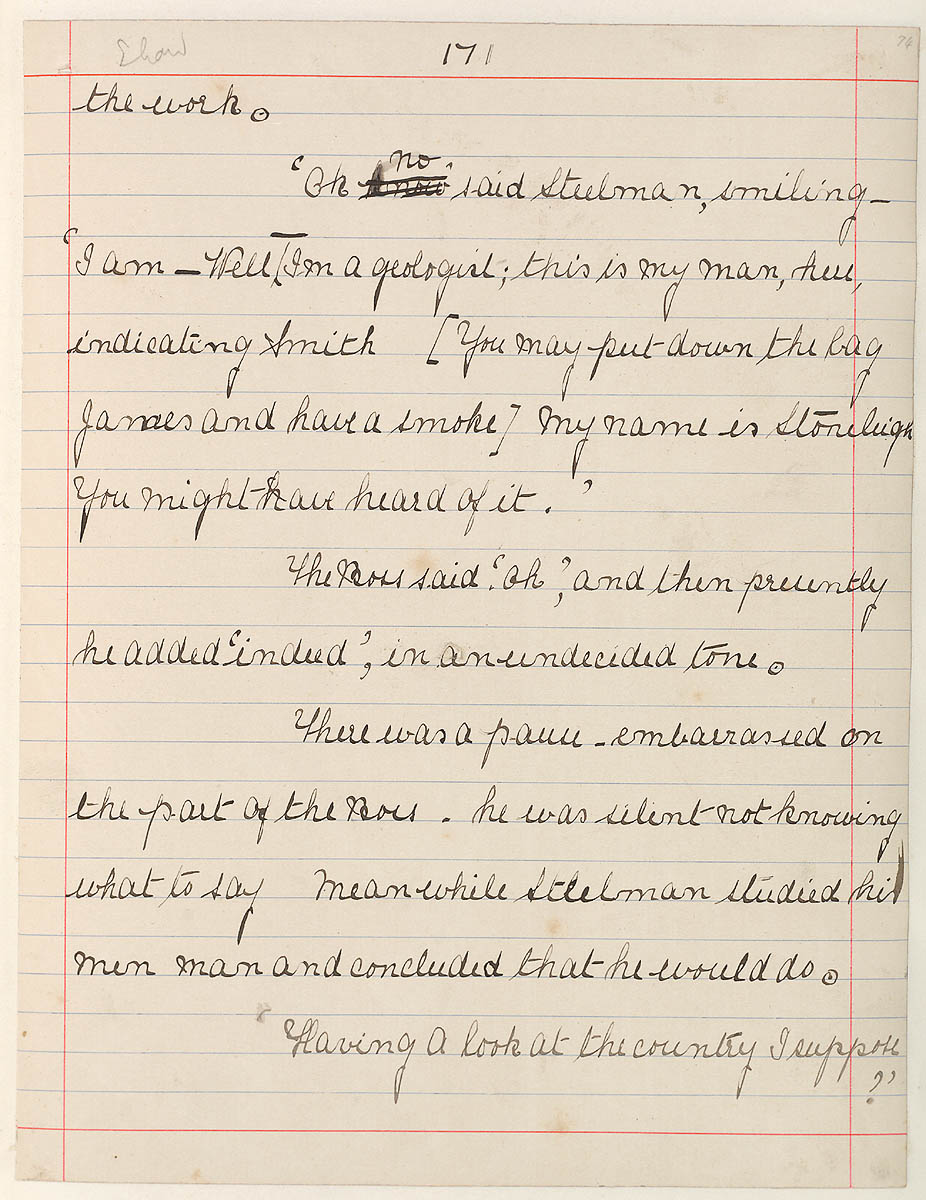 171
74
the work.
'Oh know no' said Steelman, smiling –
'I am – Well [I'm a geologist; this is my man, here,
indicating Smith [You may put down the bag
James and have a smoke] My name is Stoneleigh
You might have heard of it.'
The Boss said 'Oh', and then presently
he added 'indeed', in an undecided tone.
There was a pause – embarrassed on
the part of the Boss . he was silent not knowing
what to say Meanwhile Steelman studied his
men man and concluded that he would do.
'Having a look at the country I suppose
?'